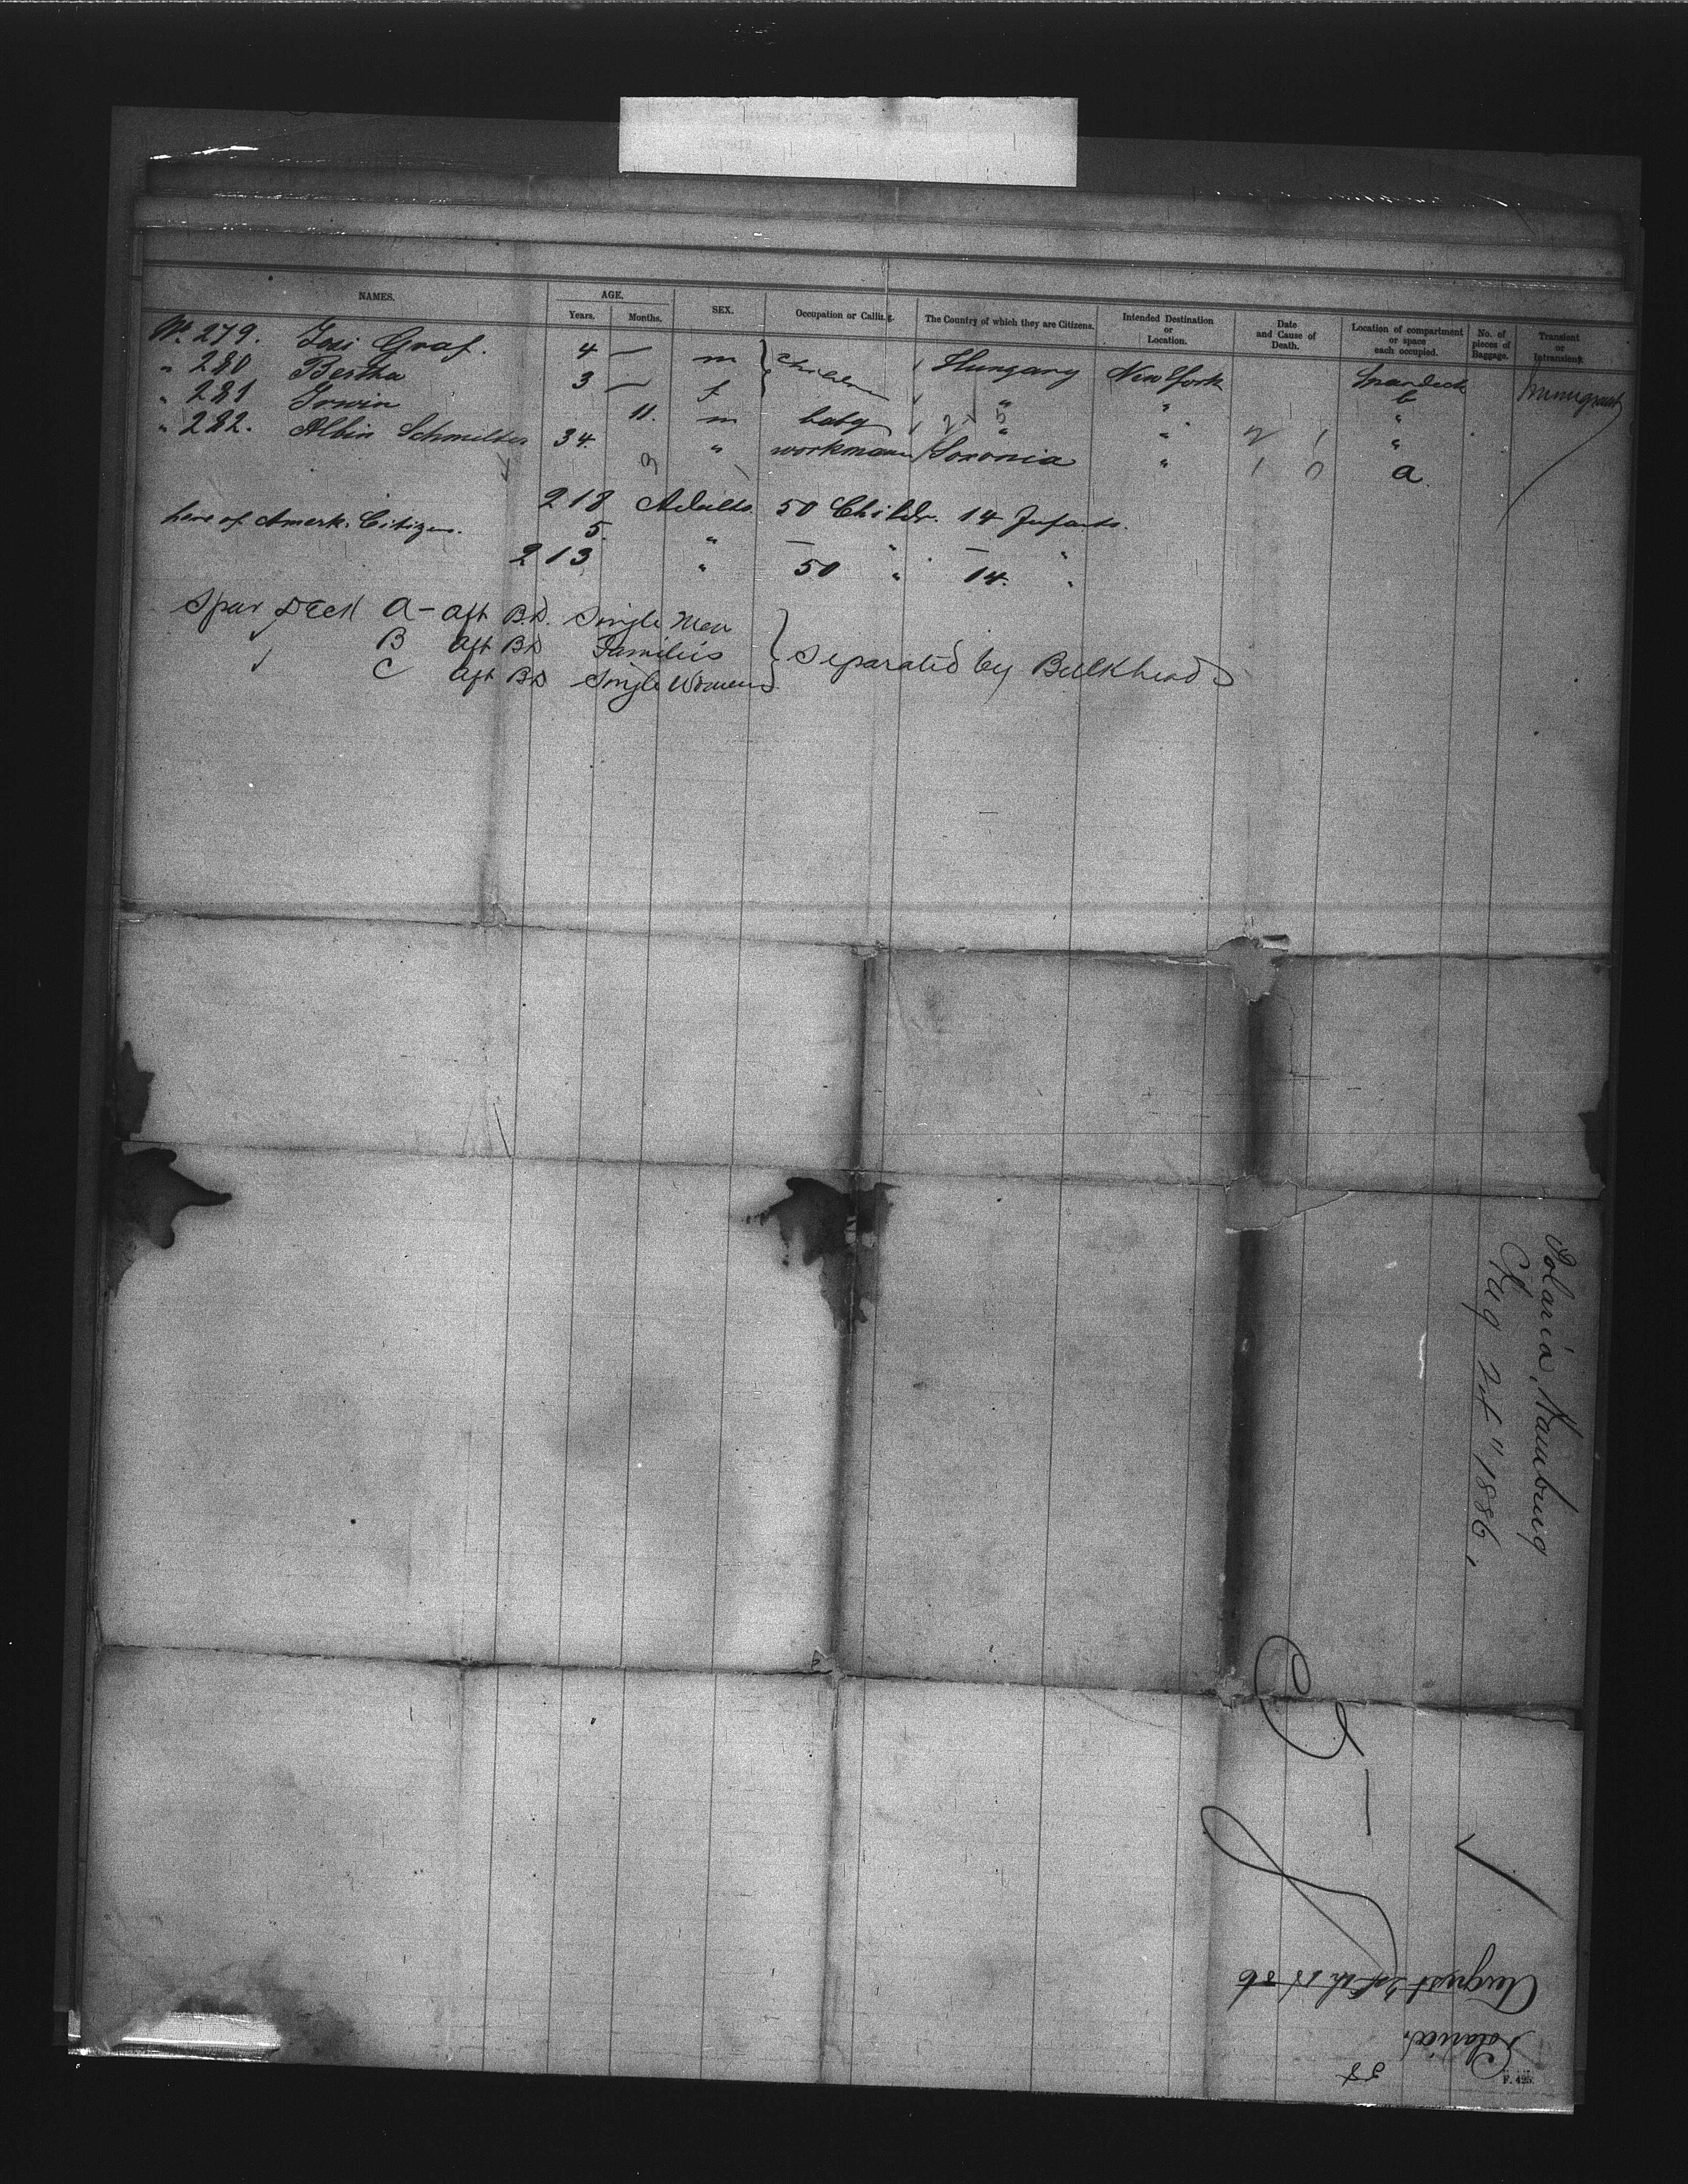 NAMES. AGE. Years. Months. SEX. Occupation or Calling. The Country of which they are Citizens. Intended Destination or Location. Date and Cause of Death. Location of compartment or space each occupied. No. of pieces of Baggage. Transient or Intransient.
No. 279. Graf. 4 — m children Hungary New York b Immigrant
" 280 Bertha 3 — f " " "
" 281 Irwin 11. m baby " " "
" 282. Albin 34. " workmann Saxonia " a.
218 Adults. 50 Childr. 14 Infants.
here of Amerk. Citizen. 5. " — " — "
213 " 50 " 14. "
Spar Deck A - aft B.D. Single Men
B aft BD Families } Separated by Bulkheads
C aft BD Single Womens
Polaria, Hamburg
Aug 1886,
August 1886
Polaria
F. 425.